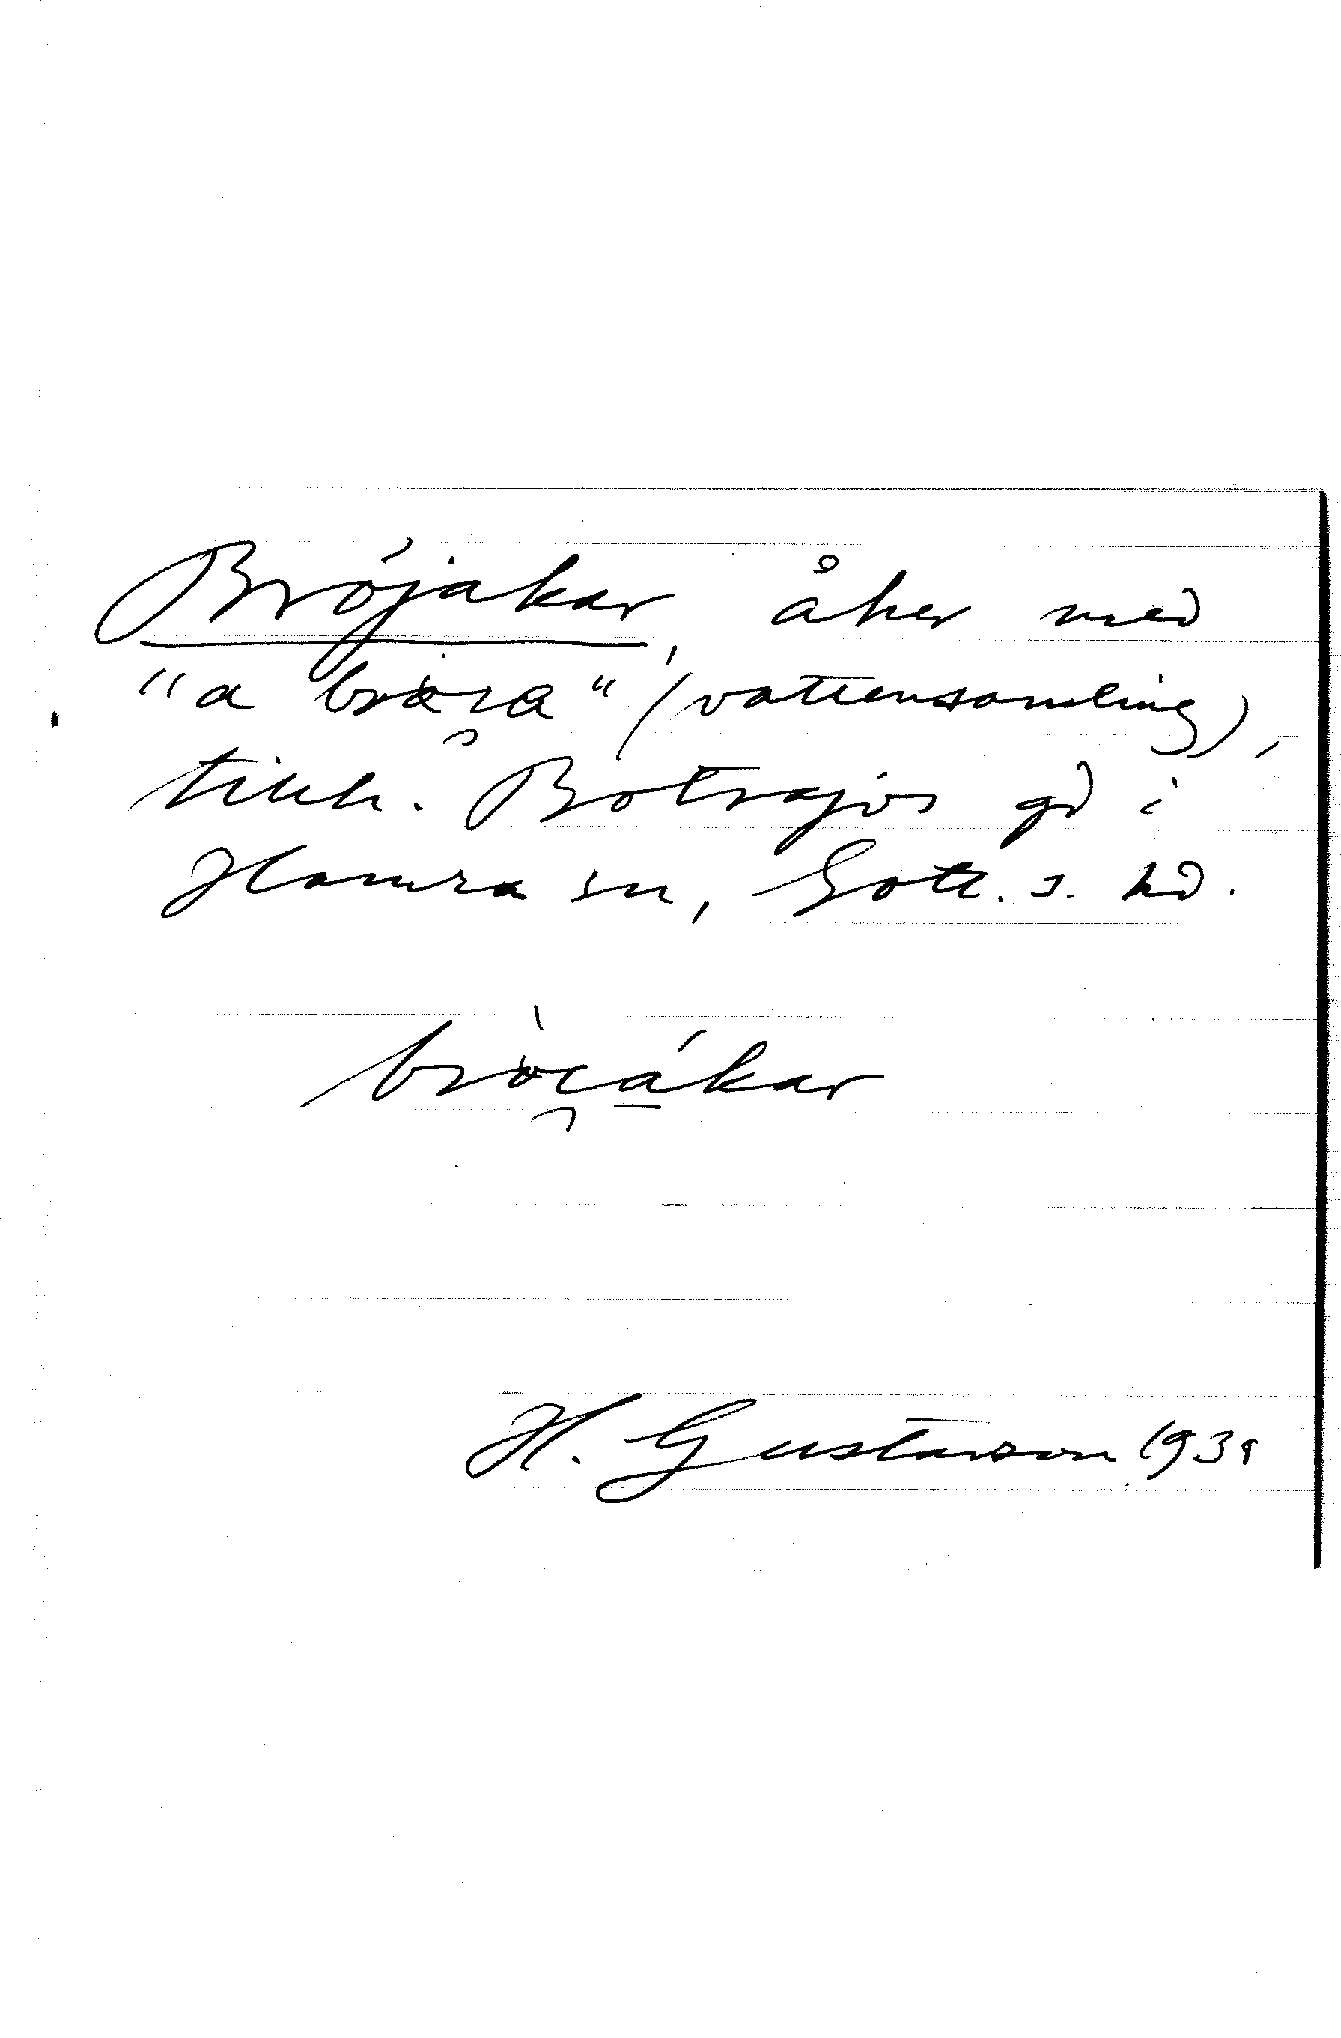 Bröjakar, åker med
"a bröia" (vattensamling),
tillh. Botvajvs gd i
Hamra sn, Gotl. s. hd.
bròi̯ákar
H. Gustavson 1939